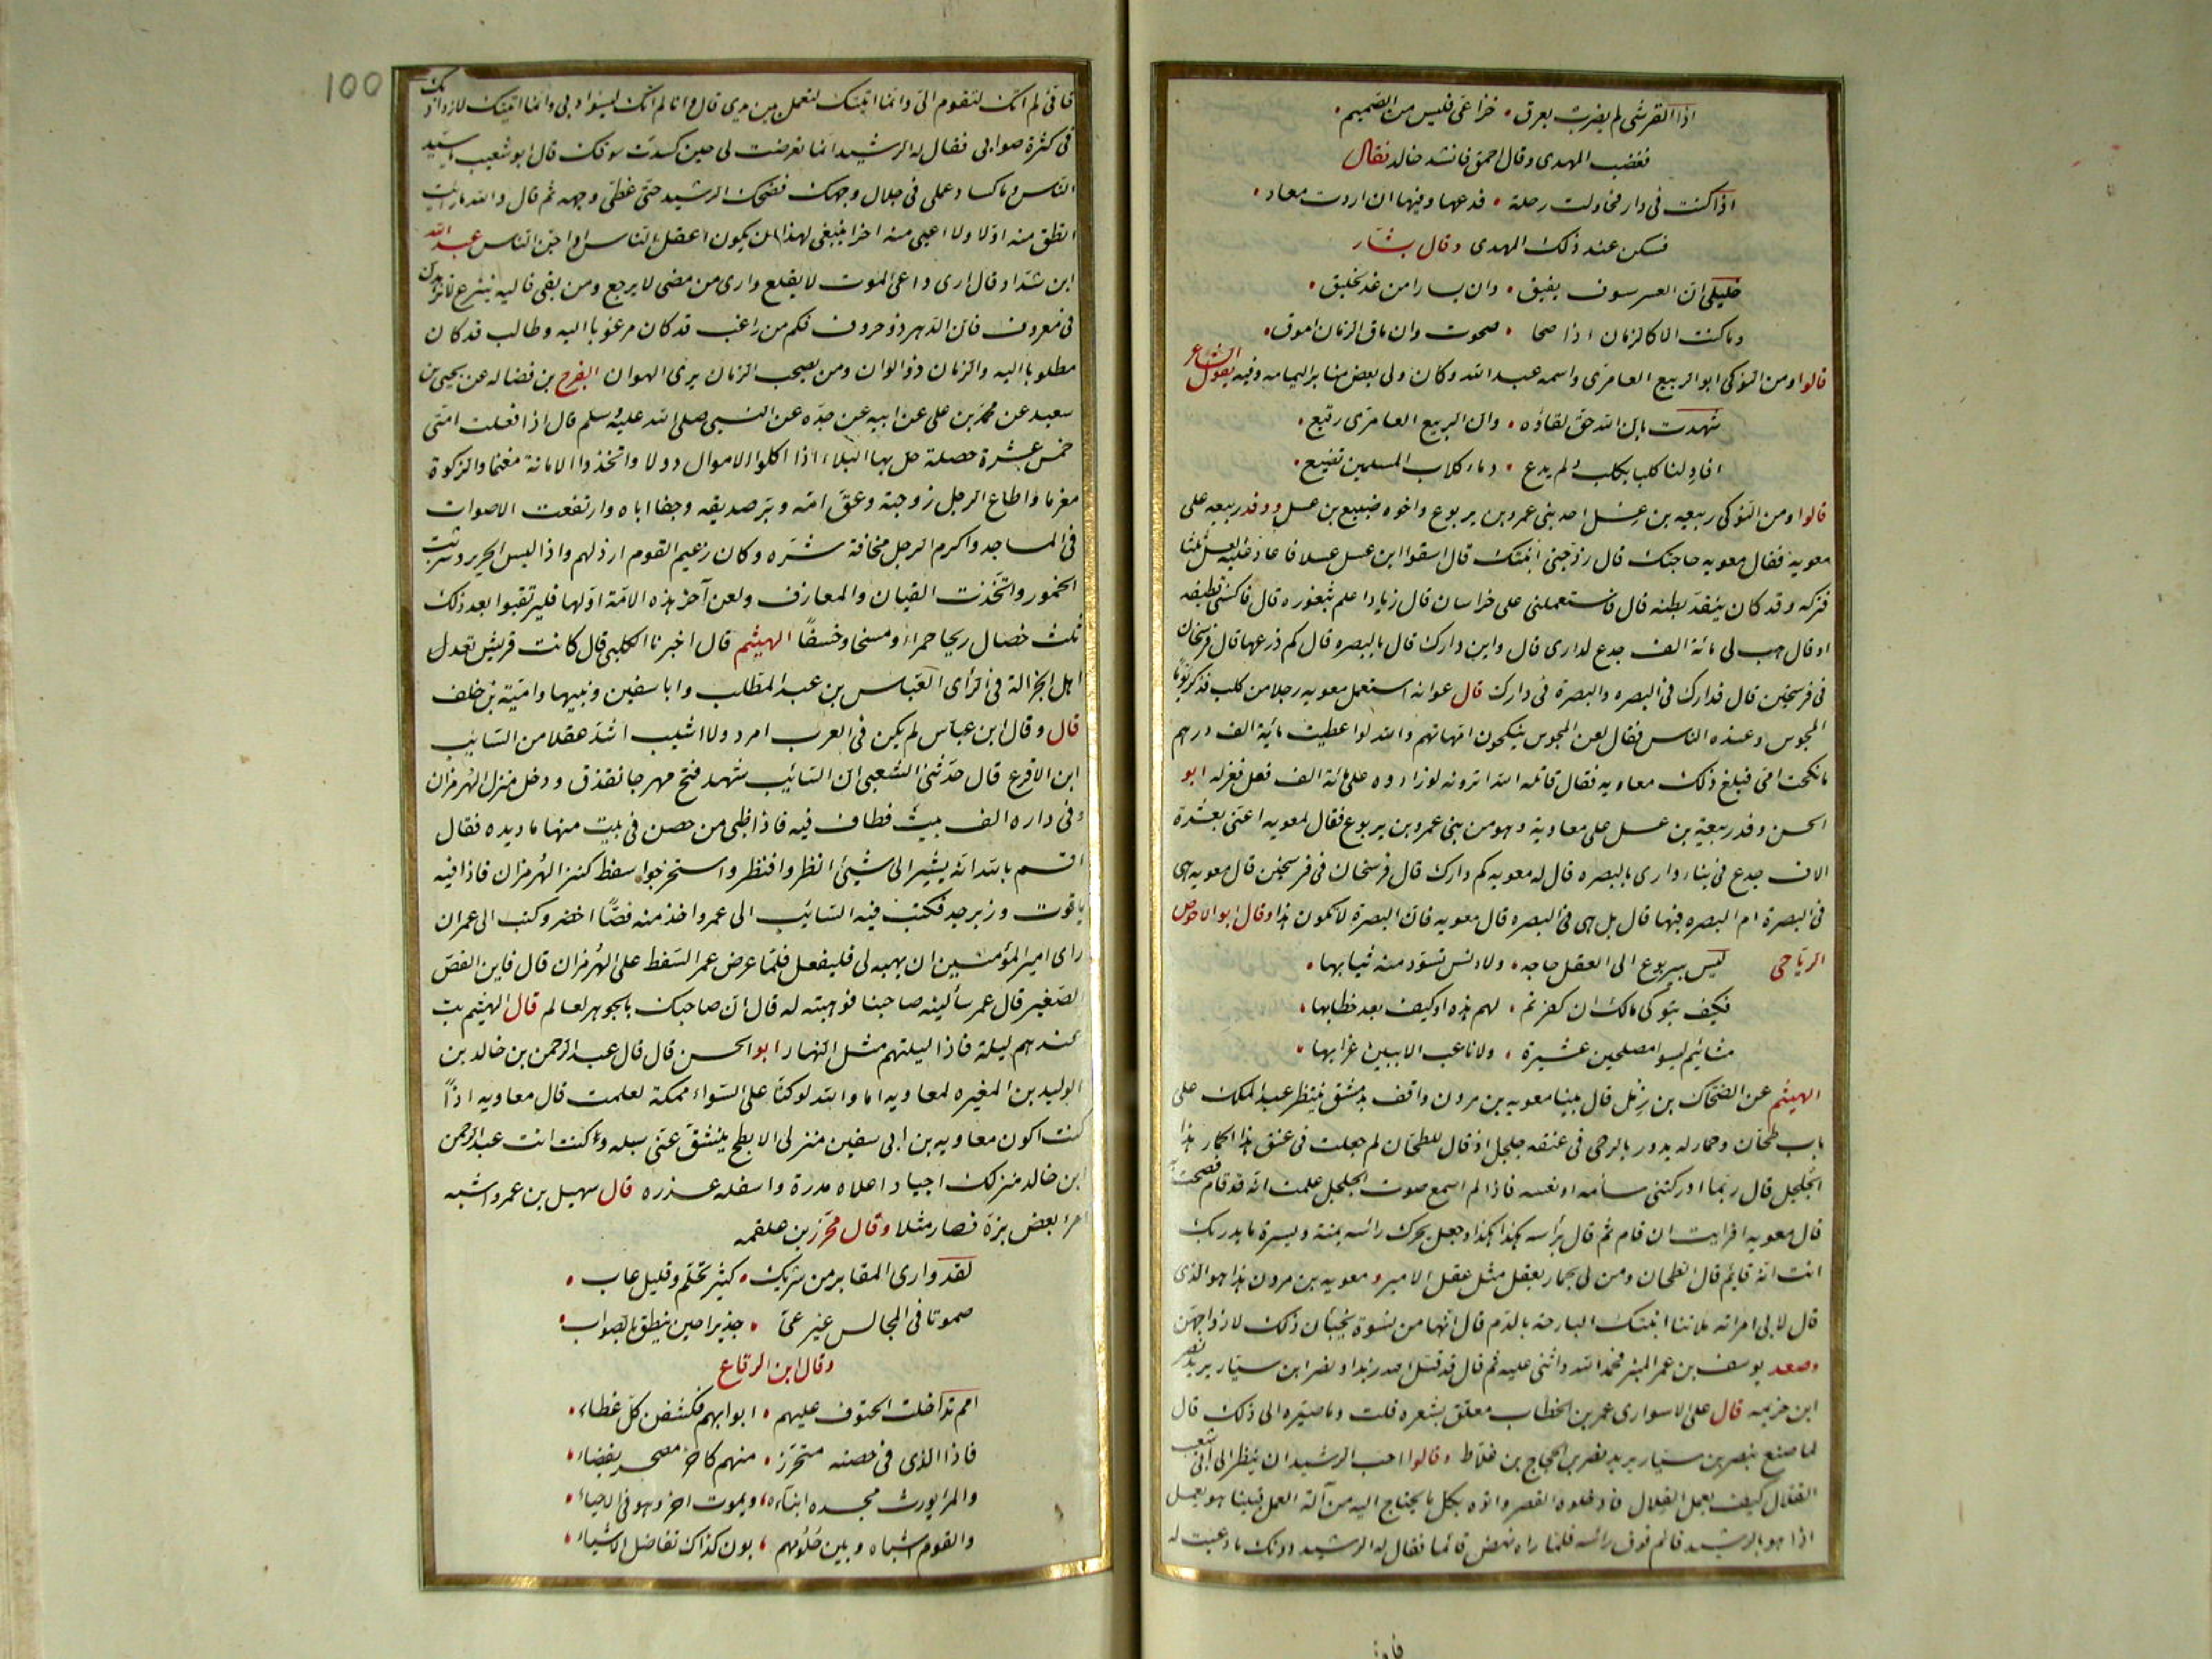 اذا القرشى لم يضرب بعرق • خزاعى فليس من الصميم •
فغضب المهدى وقال احمق فانشد خالد فقال
اذا كنت فى دار فحاولت رحلة • فدعها وفيها ان اردت معاد •
فسكن عند ذلك المهدى وقال بشار
خليلى ان العسر سوف يفيق • وان يسارا من غد لخليق •
وما كنت الا كالزمان اذا صحا • صحوت وان ماق الزمان اموق •
قالوا ومن النوكى ابو الربيع العامرى واسمه عبد الله وكان ولى بعض منابر اليمامه وفيه يقول الشاعر
شهدت بان الله حق لقاؤه • وان الربيع العامرى رقيع •
افاد لنا كلبا بكلب ولم يدع • دماء كلاب المسلمين تضيع •
قالوا ومن النوكى ربيعه بن عسل احد بنى عمرو بن يربوع واخوه ضبيع بن عسل ووفد ربيعه على
معوية فقال معويه حاجتك قال زوجنى ابنتك قال اسقوا ابن عسل عسلا فاعاد عليه العسل ثلثا
فتركه وقد كان ينقد بطنه قال فاستعملنى على خراسان قال زياد اعلم بثغوره قال فاكسنى قطيفه
او قال هب لى مائة الف جذع لدارى قال واين دارك قال بالبصره قال كم ذرعها قال فرسخان
فى فرسخين قال فدارك فى البصره والبصرة فى دارك قال عوانه استعمل معويه رجلا من كلب فذكر يوما
المجوس وعنده الناس فقال لعن المجوس ينكحون امهاتهم والله لو اعطيت مائة الف درهم
ما نكحت امى فبلغ ذلك معاويه فقال قاتله الله اترونه لو زادوه على مائة الف فعل فعزله ابو
الحسن وفد ربيعة بن عسل على معاوية وهو من بنى عمرو بن يربوع فقال لمعويه اعنى بعشرة
الاف جذع فى بناء دارى بالبصره قال له معويه كم دارك قال فرسخان فى فرسخين قال معويه هى
فى البصرة ام البصره فيها قال بل هى فى البصره قال معويه فان البصرة لا تكون هذا وقال ابو الاحوص
الرياحى ليس بيربوع الى العقل حاجه • ولا دنس تسود منه ثيابها •
فكيف بنوكى مالك ان كفرتم • لهم هذه او كيف بعد خطابها •
مشائيم ليسوا مصلحين عشيرة • ولا ناعب الا ببين غرابها •
الهيثم عن الضحاك بن زمل قال بينا معويه بن مرون واقف بدمشق ينتظر عبد الملك على
باب طحان وحمار له يدور بالرحى فى عنقه جلجل اذ قال للطحان لم جعلت فى عنق هذا الحمار هذا
الجلجل قال ربما ادركتنى سأمه او نعسه فاذا لم اسمع صوت الجلجل علمت انه قد قام فصحت به
قال معويه افرايت ان قام ثم قال برأسه هكذا هكذا وجعل يحرك رأسه يمنة ويسرة ما يدريك
انت انه قايم قال الطحان ومن لى بحمار يعقل مثل عقل الامير ومعويه بن مرون هذا هو الذى
قال لابى امراته ملاتنا ابنتك البارحة بالدم قال انها من نسوة يخبأن ذلك لازواجهن
وصعد يوسف بن عمر المنبر فحمد الله واثنى عليه ثم قال قد قتل الله زيدا ونصر ابن سيار يريد نصر
ابن خزيمه قال على الاسوارى عمر بن الخطاب معلق بشعره قلت وما صيره الى ذلك قال
لما صنع بنصر بن سيار يريد نصر بن الحجاج بن علاط وقالوا احب الرشيد ان ينظر الى ابى شعيب
القلال كيف يعمل القلال فادخلوه القصر واتوه بكل ما يحتاج اليه من آلة العمل فبينا هو يعمل
اذا هو بالرشيد قائم فوق رأسه فلما راه نهض قائما فقال له الرشيد دونك ما دعيت له
100
فانى لم اتك لتقوم الى وانما اتيتك لتعمل بين يدى قال وانا لم اتك ليسوء ادبى وانما اتيتك لازداد بك
فى كثرة صوابى فقال له الرشيد انما تعرضت لى حين كسدت سوقك قال ابو شعيب يا سيد
الناس وما كساد عملى فى جلال وجهك فضحك الرشيد حتى غطى وجهه ثم قال والله ما رأيت
انطق منه اولا ولا اعيى منه اخرا ينبغى لهذا ان يكون اعقل الناس او اجن الناس عبد الله
ابن شداد قال ارى داعى الموت لا يقلع وارى من مضى لا يرجع ومن بقى فاليه ينزع لا تزهدن
فى معروف فان الدهر ذو صروف فكم من راغب قد كان مرغوبا اليه وطالب قد كان
مطلوبا اليه والزمان ذو الوان ومن يصحب الزمان يرى الهوان الفرج بن فضاله عن يحيى بن
سعيد عن محمد بن على عن ابيه عن جده عن النبى صلى الله عليه وسلم قال اذا فعلت امتى
خمس عشرة خصلة حل بها البلاء اذا اكلوا الاموال دولا واتخذوا الامانة مغنما والزكوة
مغرما واطاع الرجل زوجته وعق امه وبر صديقه وجفا اباه وارتفعت الاصوات
فى المساجد واكرم الرجل مخافة شره وكان زعيم القوم ارذلهم واذا لبس الحرير وشربت
الخمور واتخذت القيان والمعازف ولعن آخر هذه الامة اولها فليرتقبوا بعد ذلك
ثلث خصال ريحا حمراء ومسخا وخسفا الهيثم قال اخبرنا الكلبى قال كانت قريش تعدل
اهل الجزالة فى الرأى العباس بن عبد المطلب وابا سفين ونبيها وامية بن خلف
قال وقال ابن عباس لم يكن فى العرب امرد ولا اشيب اشد عقلا من السائب
ابن الاقرع قال حدثنى الشعبى ان السائب شهد فتح مهرجانقذق ودخل منزل الهرمزان
وفى داره الف بيت فطاف فيه فاذا ظبى من جص فى بيت منها ماد يده فقال
اقسم بالله انه يشير الى شيئ انظروا فنظروا واستخرجوا سفط كنز الهرمزان فاذا فيه
ياقوت وزبرجد فكتب فيه السائب الى عمر واخذ منه فصا اخضر وكتب الى عمر ان
راى امير المؤمنين ان يهبه لى فليفعل فلما عرض عمر السفط على الهرمزان قال فاين الفص
الصغير قال عمر سألنيه صاحبنا فوهبته له قال ان صاحبك بالجوهر لعالم قال الهيثم بت
عندهم ليلة فاذا ليلتهم مثل النهار ابو الحسن قال قال عبد الرحمن بن خالد بن
الوليد بن المغيره لمعاويه اما والله لو كنا على السواء بمكة لعلمت قال معاويه اذاً
كنت اكون معاويه بن ابى سفين منزلى الابطح ينشق عنى سيله وكنت انت عبد الرحمن
ابن خالد منزلك اجياد اعلاه مدرة واسفله عذره قال سهيل بن عمرو اشبه
امرء بعض بزه فصار مثلا وقال محرز بن علقمه
لقد وارى المقابر من شريك • كثير تحلم وقليل عاب •
صموتا فى المجالس غير عى • جديرا حين ينطق بالصواب •
وقال ابن الرقاع
امم تداخلت الحتوف عليهم • ابوابهم فكشفن كل غطاء •
فاذا الذى فى حصنه متحرز • منهم كاخر مصحر بفضاء •
والمرء يورث مجده ابناءه • ويموت اخر وهو فى الاحياء •
والقوم اشباه وبين حلومهم • بون كذاك تفاضل الاشياء •